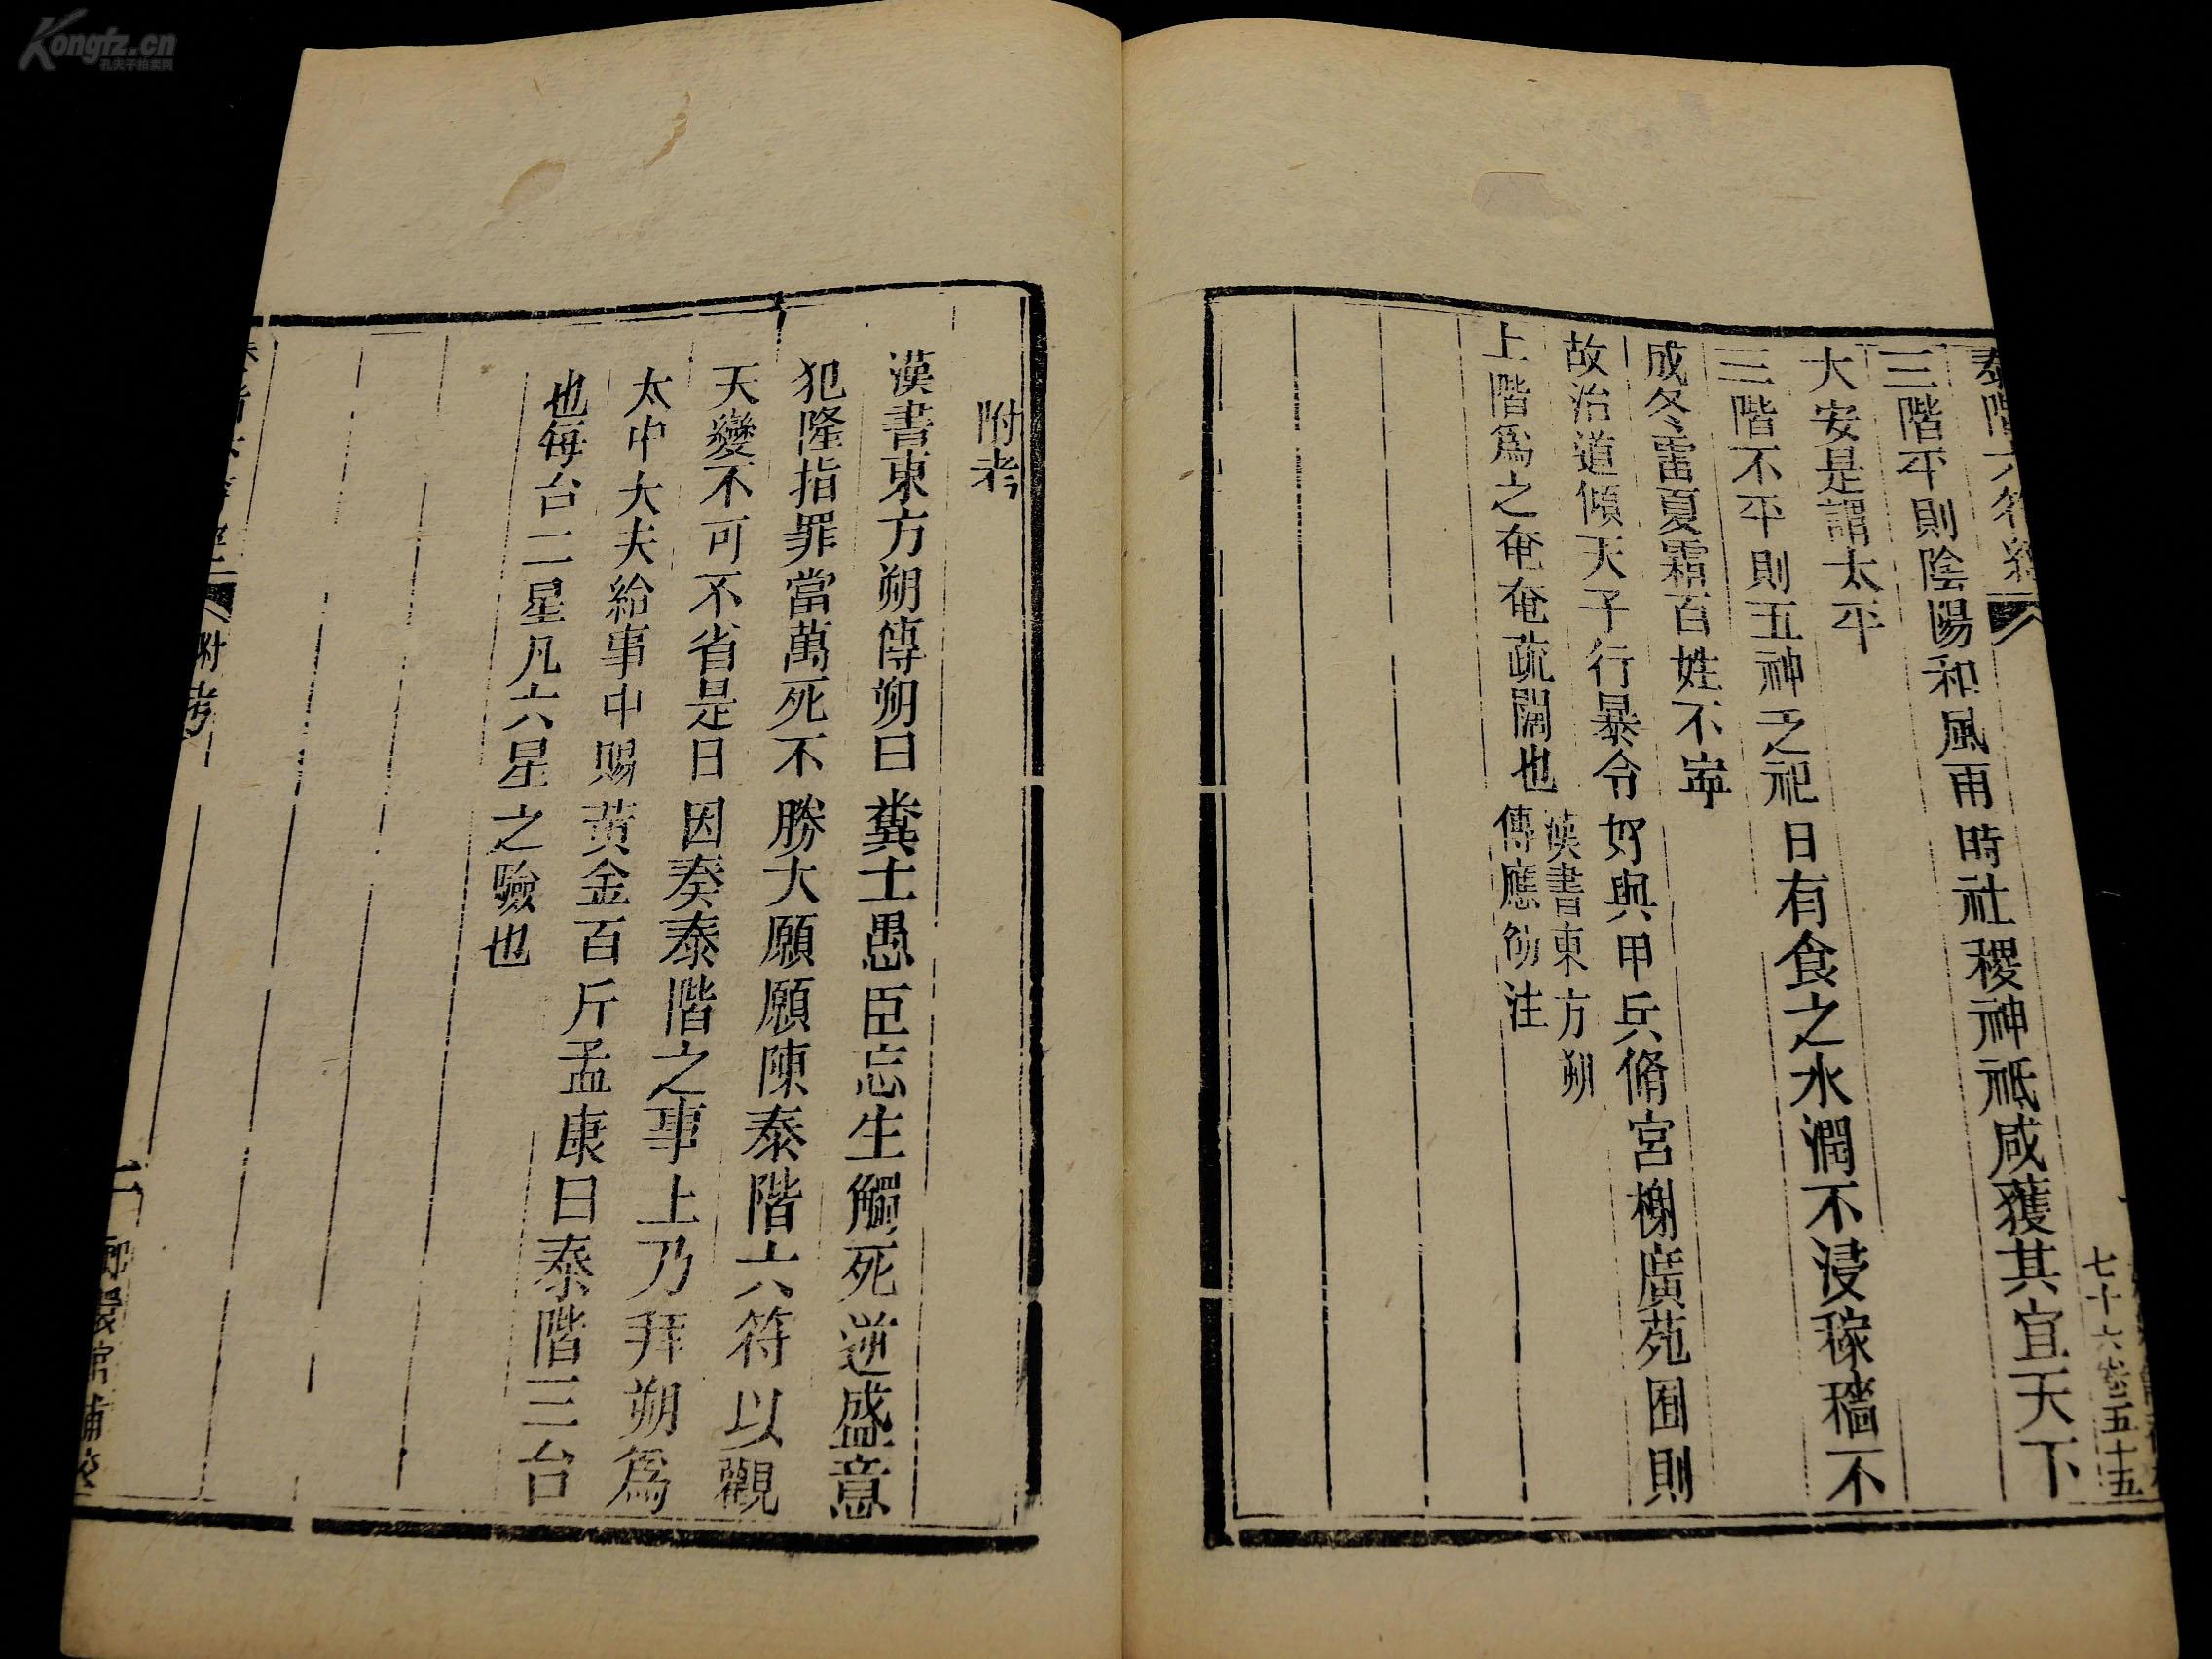 Kongfz.cn
孔夫子拍卖网
三階平則陰陽和風雨時社稷神祗咸獲其宜天下
大安是謂太平
三階不平則五神乏祀日有食之水潤不浸稼穡不
成冬雷夏霜百姓不寧
故治道傾天子行暴令好興甲兵脩宮榭廣苑囿則
上階爲之奄奄疏闊也
漢書東方朔
傳應劭注
七十六卷五十五
附考
漢書東方朔傳朔曰糞土愚臣忘生觸死逆盛意
犯隆指罪當萬死不勝大願願陳泰階六符以觀
天變不可不省是日因奏泰階之事上乃拜朔爲
太中大夫給事中賜黃金百斤孟康曰泰階三台
也每台二星凡六星之驗也
附考
二